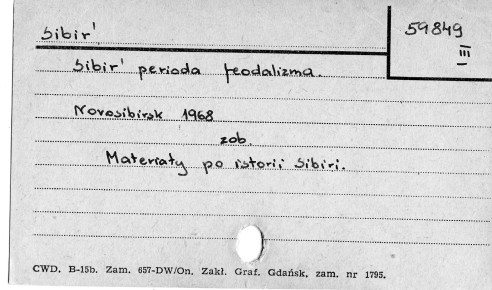 Sibir'
59849
III
Sibir' perioda feodalizma.
Novosibirsk 1968
zob.
Materiały po istorii Sibiri.
CWD. B-15b. Zam. 657-DW/On. Zakł. Graf. Gdańsk, zam. nr 1795.